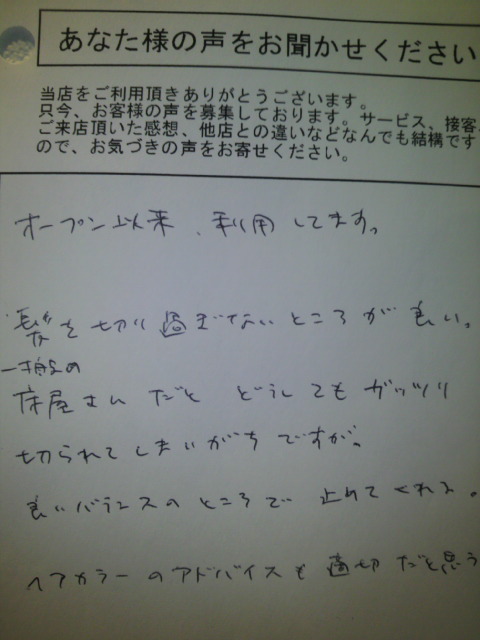 あなた様の声をお聞かせください
当店をご利用頂きありがとうございます。
只今、お客様の声を募集しております。サービス、接客、
ご来店頂いた感想、他店との違いなどなんでも結構です
ので、お気づきの声をお寄せください。
オープン以来、利用してます。
髪を切り過ぎないところが良い。
一般の
床屋さんだと どうしてもガッツリ
切られてしまいがちですが。
良いバランスのところで 止めてくれる。
ヘアカラーのアドバイスも適切だと思う